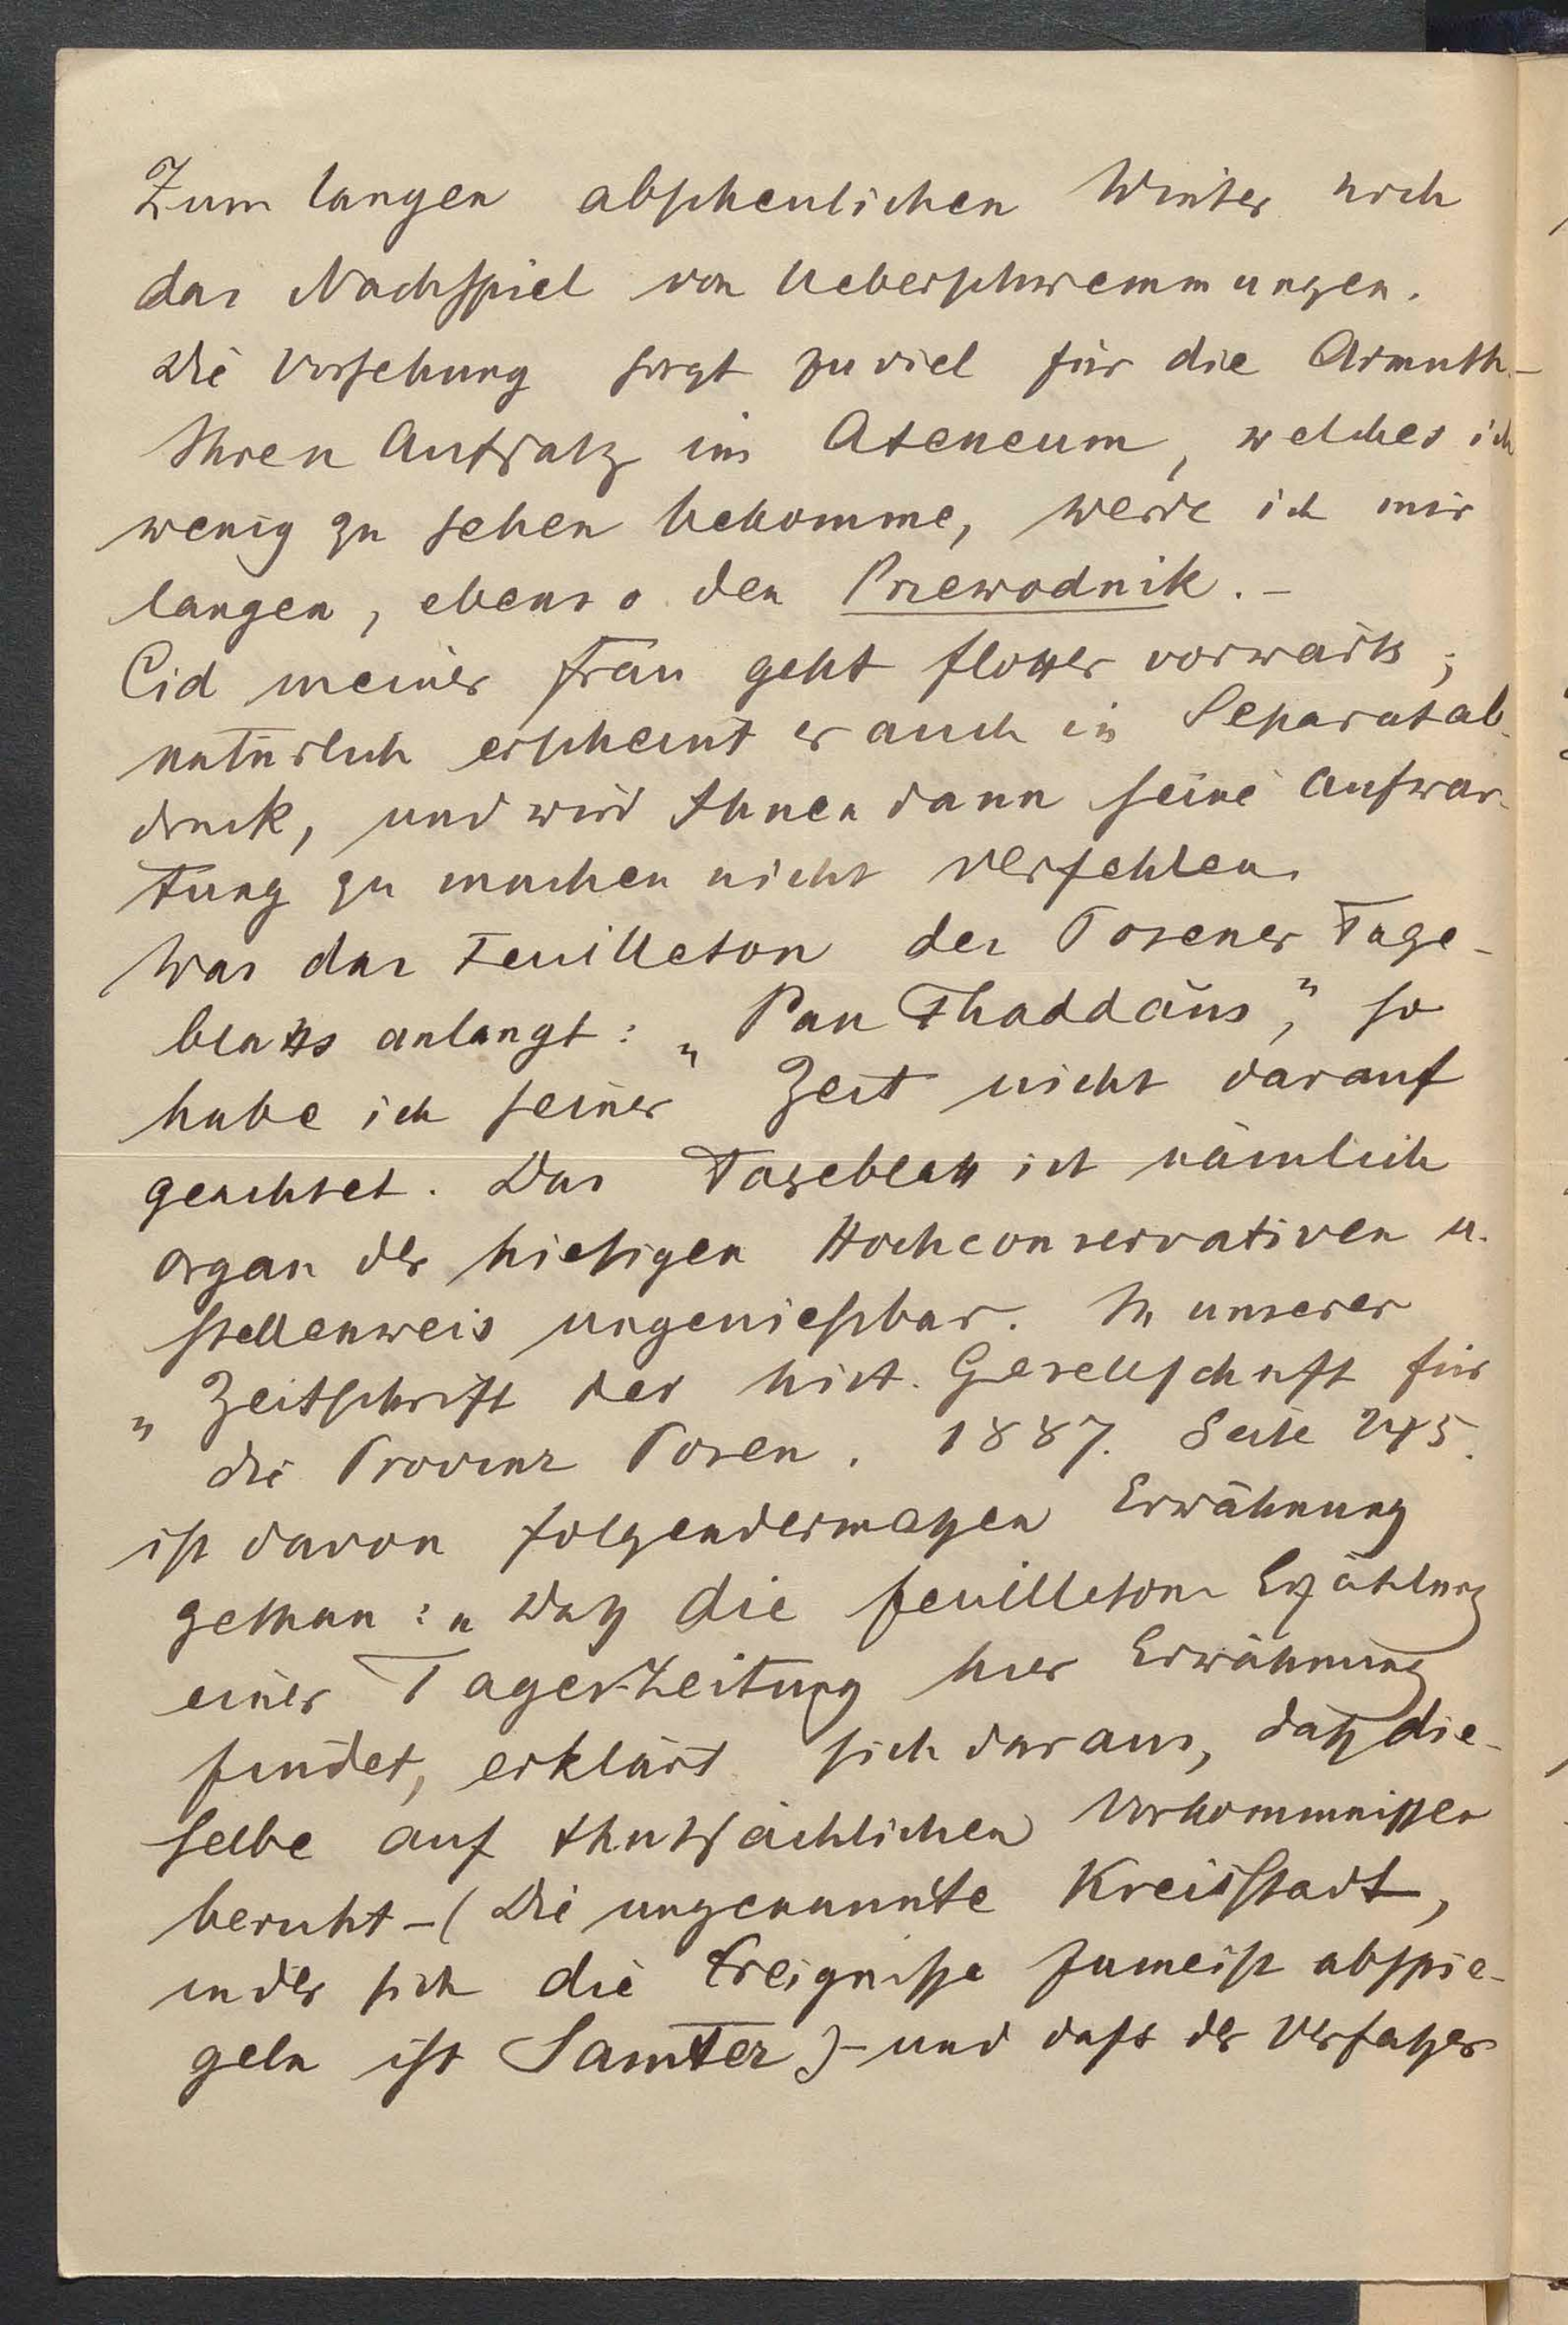 Zum langen abscheulichen Winter noch
das Nachspiel von Ueberschwemmungen.
Die Vorsehung sorgt zu viel für die Armuth. –
Ihren Aufsatz im Ateneum, welches ich
wenig zu sehen bekomme, werde ich mir
langen, ebenso den Przewodnik. –
Cid meiner Frau geht flotter vorwärts;
natürlich erscheint er auch in Separatab-
druck, und wird Ihnen dann seine Aufwar-
tung zu machen nicht verfehlen.
Was das Feuilleton des Posener Tage-
blatts anlangt: „Pan Thaddäus,” so
habe ich seiner Zeit nicht darauf
geachtet. Das Tageblatt ist nämlich
Organ der hiesigen Hochconservativen u.
stellenweis ungenießbar. In unserer
„Zeitschrift der hist. Gesellschaft für
die Provinz Posen. 1887. Seite 245.
ist davon folgendermaßen Erwähnung
gethan: „Daß die Feuilleton-Erzählung
einer Tages-Zeitung hier Erwähnung
findet, erklärt sich daraus, daß die-
selbe auf thatsächlichen Vorkommnissen
beruht – (Die ungenannte Kreisstadt,
in der sich die Ereignisse zumeist abspie-
geln ist Samter) – und dass der Verfasser